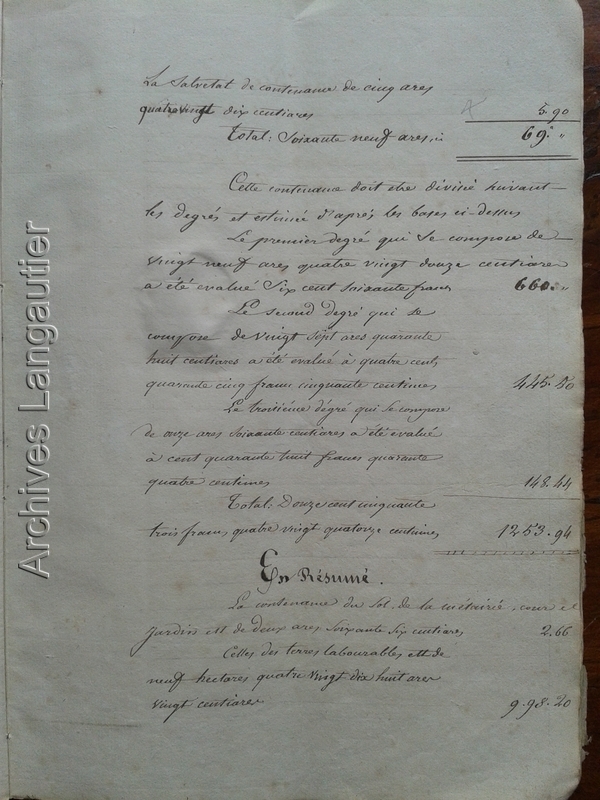 La Salvetat de contenance de cinq ares
quatre vingt dix centiares 5.90
Total: Soixante neuf ares, ci 69. "
Cette contenance doit être divisée suivant
les degrés et estimée d'après les bases ci-dessus
Le premier degré qui se compose de
vingt neuf ares quatre vingt douze centiares
a été evalué Six cent soixante francs 660. "
Le second degré qui se
compose de vingt sept ares quarante
huit centiares a été evalué à quatre cent
quarante cinq francs cinquante centimes 445.50
Le troisième degré qui se compose
de onze ares Soixante centiares a été evalué
à cent quarante huit francs quarante
quatre centimes 148.44
Total: Douze cent cinquante
trois francs quatre vingt quatorze centimes 1253.94
En Résumé.
La contenance du Sol de la métairie, cour et
Jardin est de deux ares Soixante Six centiares 2.66
Celles des terres labourables est de
neuf hectares quatre vingt dix huit ares
vingt centiares 9.98.20
Archives Langautier